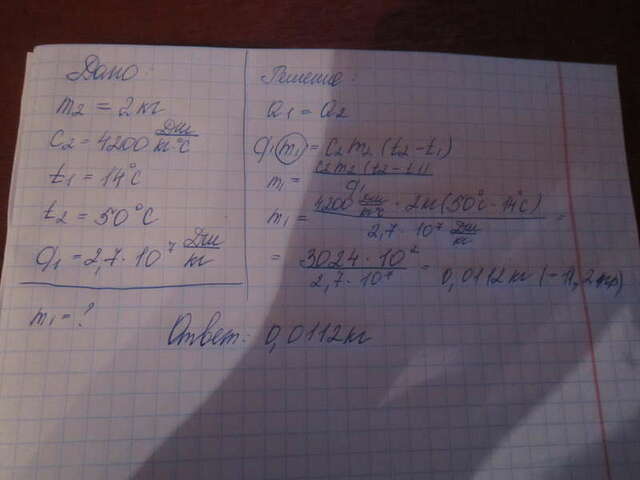 Дано:
m₂ = 2 кг
c₂ = 4200 Дж/кг·°C
t₁ = 14°C
t₂ = 50°C
q₁ = 2,7 · 10⁷ Дж/кг
m₁ = ?
Решение:
Q₁ = Q₂
q₁m₁ = c₂m₂(t₂-t₁)
m₁ = c₂m₂(t₂-t₁)/q₁
m₁ = 4200 Дж/кг°C · 2кг(50°C-14°C)/2,7 · 10⁷ Дж/кг =
= 3024 · 10²/2,7 · 10⁷ = 0,0112 кг (-11,2гр)
Ответ: 0,0112кг